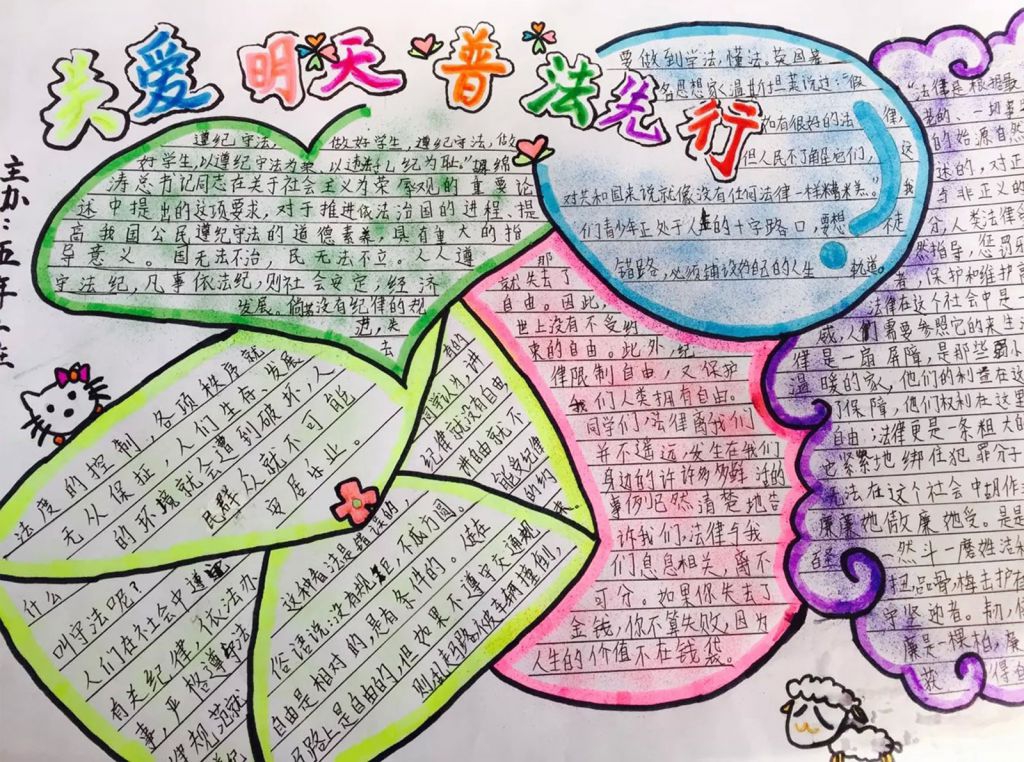 关爱明天普法先行
主办:五年
遵纪守法,做好学生,遵纪守法,做
好学生,以遵纪守法为荣,以违法乱纪为耻。"胡锦
涛总书记同志在关于社会主义为荣辱观的重要论
述中提出的这项要求,对于推进依法治国的进程、提
高我国公民遵纪守法的道德素养,具有重大的指
导意义。国无法不治,民无法不立。人人遵
守法纪,凡事依法纪,则社会安定,经济
发展。倘若没有纪律的规
进,失
去
法度的控制,各项秩序就
无从保证,人们生存、发展
的环境就会遭到破坏,人
民群众就不可能
安居乐业。
什么
叫守法呢?
人们在社会中遵迎
有关纪律,依法办
事,严格遵守法
律规范就
有的
同学认为讲
纪律就没有自由
讲自由就不
能受纪律
的约
这种看法是错误的
俗语说:没有规矩,不成方圆。
自由是相对的,是有条件的。走在
马路上是自由的,但如果不遵守交通规
则乱走马路,被车辆撞倒,
那
就失去了
自由。因此,
世上没有不受约
束的自由。此外,纪
律限制自由,又保护
我们人类拥有自由。
同学们,法律离我们
并不遥远,发生在我们
身边的许许多多鲜活的
事例已然清楚地告
许我们,法律与我
们息息相关,离不
可分。如果你失去了
金钱,你不算失败,因为
人生的价值不在钱袋。
要做到学法,懂法。英国著
名思想家温斯坦莱说过:"假
如有很好的法律,
但人民不了解它们,这
对共和国来说就像没有任何法律一样糟糕。"我
们青少年正处于人生的十字路口,要想不走
错路,必须铺设好自己的人生轨道。
"法律是根据最
的始源自然
达的,对正
与非正义的
分,人类法律
然指导,惩罚
者,保护和维护
法律在这个社会中是一
威,人们需要参照它的来生
律是一扇屏障,是那些弱小
温暖的家,他们的利益在这
了保障,他们权利在这里
自由;法律更是一条粗大的
也紧紧地绑住犯罪分子
无法在这个社会中胡作
廉廉地做廉地受。是是
然斗一磨姓法和
守坚迎者。
廉是一棵柏,